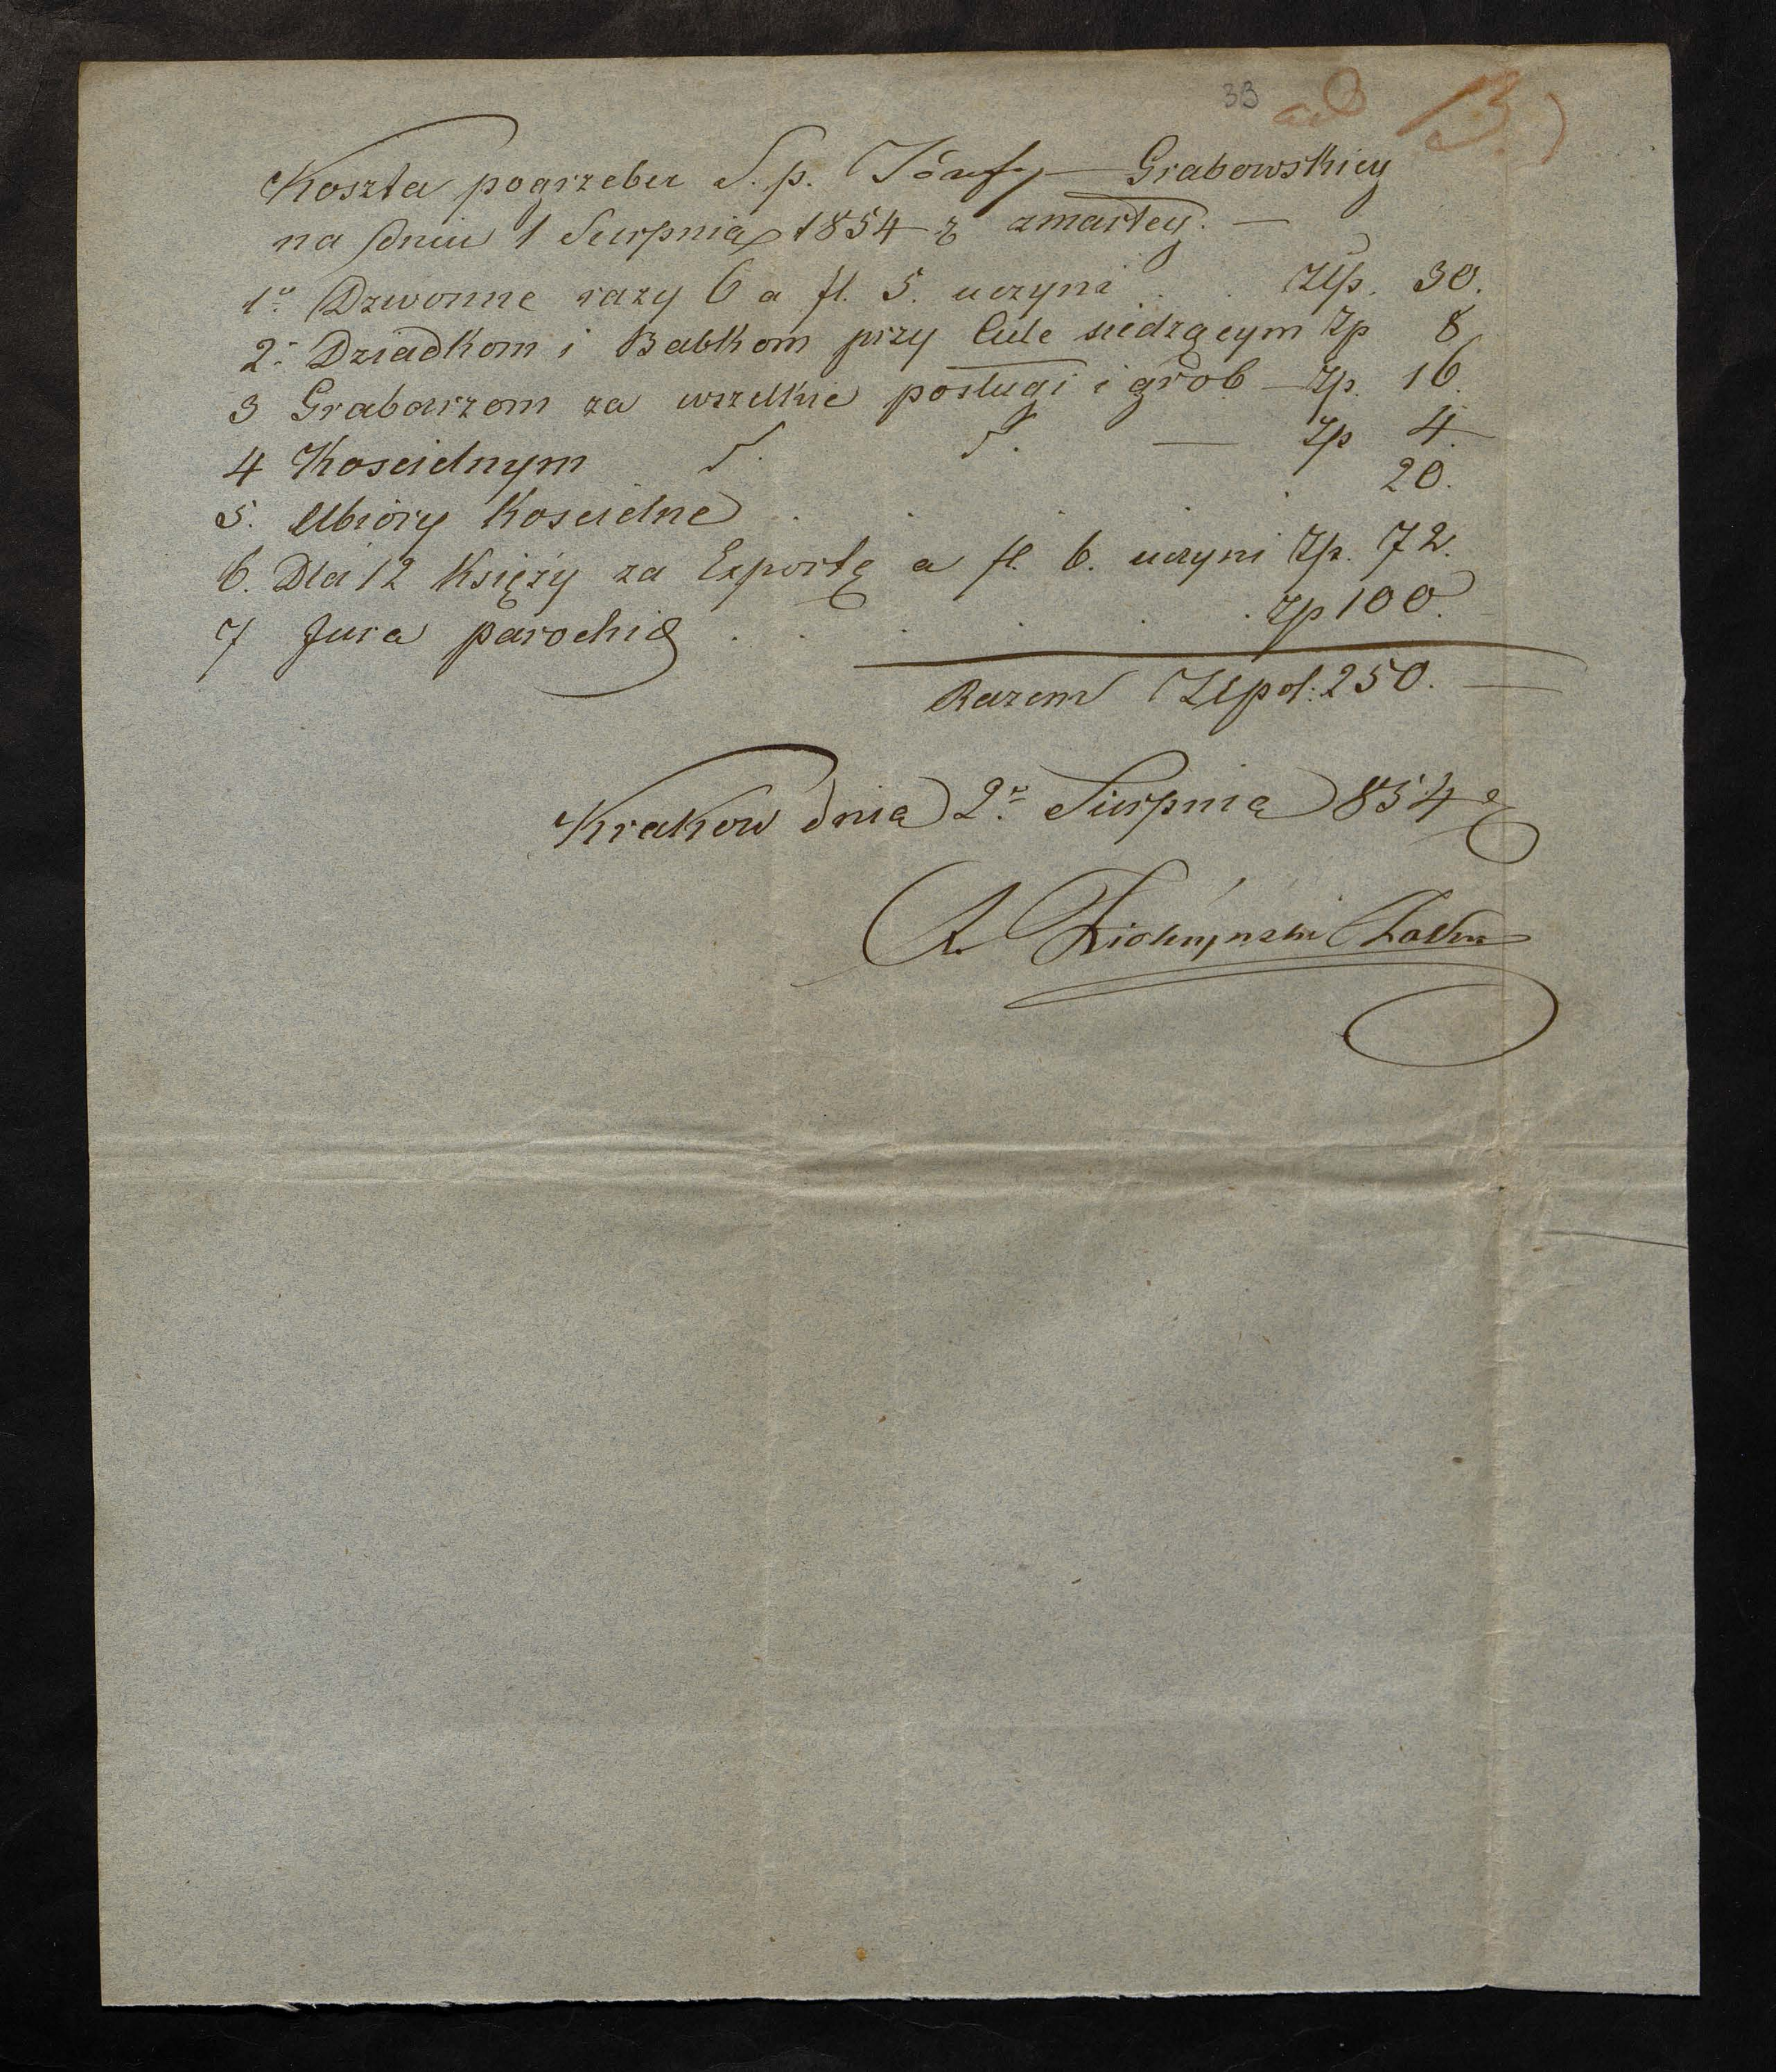 33 ad B.)
Koszta pogrzebu S. p. Józefy Grabowskiey
na dniu 1 Sierpnia 1854 r zmarłey. —
1o Dzwonne razy 6 a fl. 5. uczyni . . Złp. 30.
2o Dziadkom i Babkom przy Ciele siedzącym Zp 8
3 Grabarzom za wszelkie posługi i grób — Zp. 16.
4 Koscielnym d. d. — Zp 4.
5. Ubiory Koscielne . . . . . 20.
6. Dla 12 Księży za Exportę a fl. 6. uczyni Zp. 72.
7 Jura parochiæ . . . . . Zp 100.
Razem Złpol: 250. —
Krakow dnia 2o Sierpnia 854 r
A.